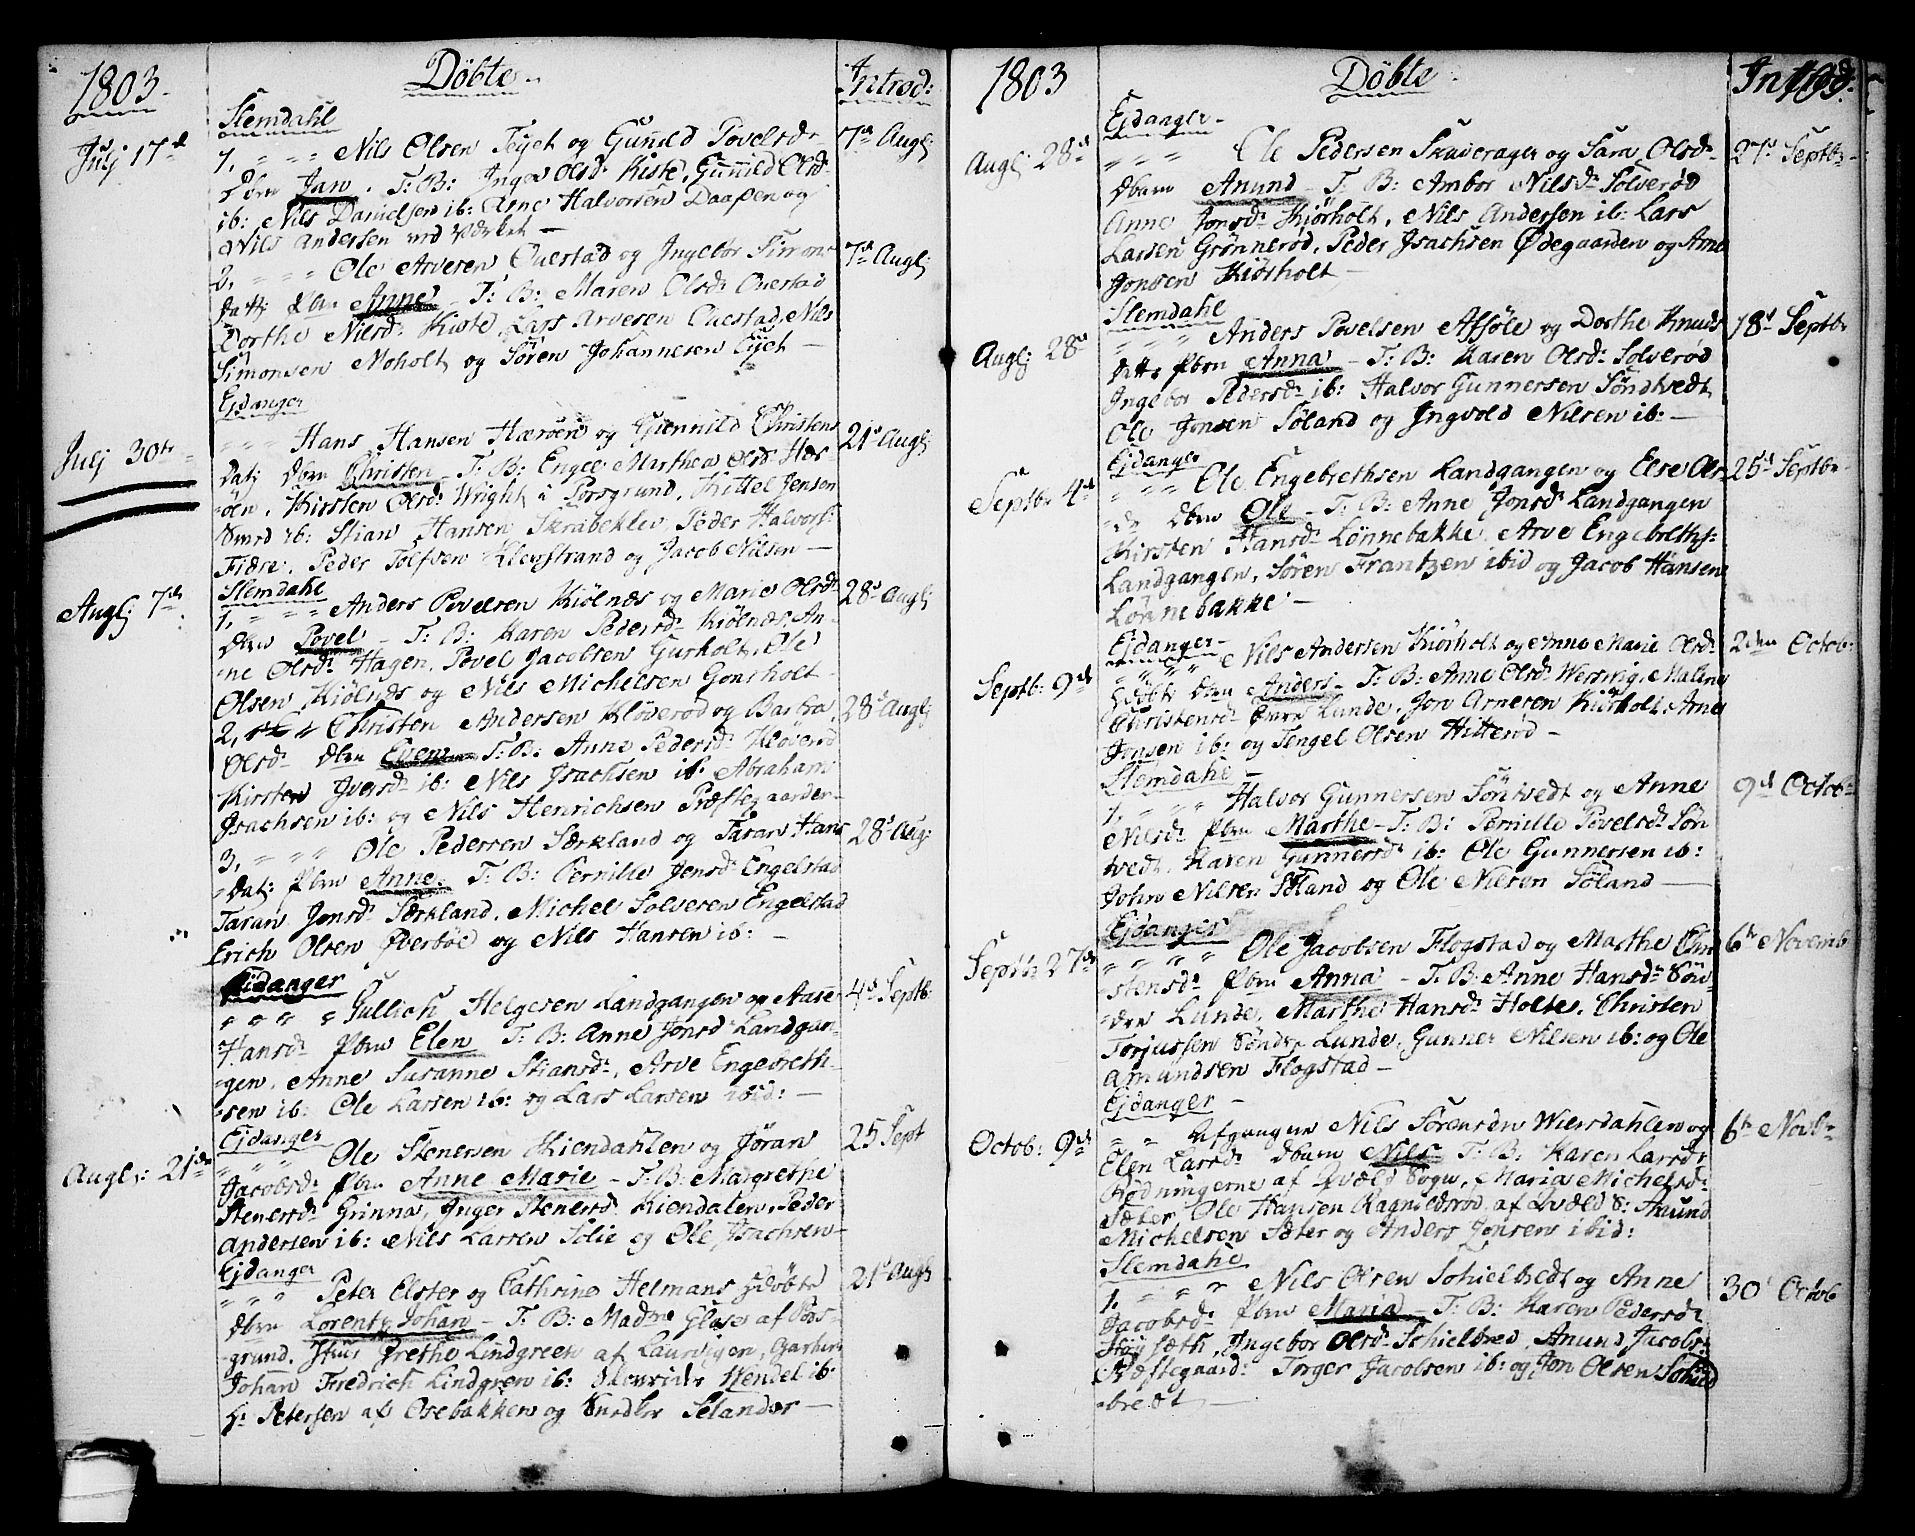 1803.
Döbte.
Introd:
Slemdahl
Julj 17d
1, " " " Nils Olsen Tyet og Gunild Povelsdr
7d Augl:
Dbrn Jan. T: B: Inger Olsdr Kiste, Gunnild Olsdr
ib: Nils Danielsen ib: Arne Halvorsen Daassen og
Nils Andersen ved Værket —
2, " " " Ole Arvesen Ouestad og Ingebor Simons
7d Augl:
datt: Pbrn Anne — T: B: Maren Olsdr Ouestad
Dorthe Nilsdr Kiste, Lars Arvesen Ouestad, Nils
Simonsen Moholt og Sören Johannesen Tyet —
Ejdanger
Julj 30te
" " " Hans Hansen Hæröen og Giennild Christens
21d Augl:
Dat: Dbrn Christen — T: B: Engel Marthea Olsdr Hær
öen, Kirsten Olsdr Wright i Porsgrund, Kittel Jensen
Smed ib: Stian Hansen Skrabeklev, Peder Halvors:
Fiære, Peder Tolfsen Klevstrand og Jacob Nilsen —
Slemdahl
Augl: 7de
1, " " " Anders Povelsen Kiölnæs og Marie Olsdr
28d Augl:
Dbrn Povel — T: B: Karen Pedersdr Kiölnæs, An-
ne Olsdr Hagen, Povel Jacobsen Gurholt, Ole
Olsen Kiölnæs og Nils Michelsen Gonsholt —
2, " " Christen Andersen Klöverød og Barbra
28d Augl:
Olsdr Dbrn Even T: B: Anne Pedersdr Kløverød
Kirsten Iversdr ib: Nils Isachsen ib: Abraham
Isachsen ib: og Nils Henrichsen Præstegaarden —
3, " " " Ole Pedersen Særkland og Taran Hans
28d Aug:
Dat: Pbrn Anne. T: B: Pernille Jensdr Engelstad
Taran Jonsdr Særkland, Michel Solvesen Engelstad
Erich Olsen Øverböe og Nils Hansen ib: —
Eidanger
" " " " Gullich Helgesen Landgangen og Aase
4d Septb:
Hansdr Pbrn Elen T: B: Anne Jonsdr Landgan-
gen, Anne Susanne Stiansdr, Arve Engebreth-
sen ib: Ole Larsen ib: og Lars Larsen ibid: —
Ejdanger
Augl: 21de
" " " Ole Stenersen Kiendahlen og Jöran
25 Sept
Jacobsdr Pbrn Anne Marie — T: B: Margrethe
Stenersdr Grinna, Inger Stenersdr Kiendalen, Peder
Andersen ib: Nils Larsen Solie og Ole Isachsen —
Ejdanger
" " " Peter Elster og Cathrine Helmans Hdöbte
21d Augl:
Dbrn Lorentz Johan — T: B: Madme Glase af Pors-
grund, Grethe Lindgreen af Laurvigen,
Johan Fredrich Lindgren ib: Hendel ib:
Hr Petersen af Osebakken og Selander —
1803
Döbte.
Introd:
Ejdanger
Augl: 28d
" " " Ole Pedersen Skaverager og Sara Olsdr
27d Septb:
Dbarn Anund — T: B: Ambor Nilsdr Solverød
Anne Jonsdr Kjörholt, Nils Andersen ib: Lars
Larsen Grönnerød, Peder Isachsen Ødegaarden og Arne
Jonsen Kiörholt —
Slemdahl
Augl: 28d
" " " Anders Povelsen Aasöle og Dorthe Knuds
18d Septb:
datt: Pbrn Anna — T: B: Karen Olsdr Solverød
Ingebor Pedersdr ib: Halvor Gunnersen Söndtvedt
Ole Jonsen Söland og Ingvold Nilsen ib: —
Ejdanger
Septb: 4d
" " " Ole Engebrethsen Landgangen og Else Ols-
25d Septb:
dr Dbrn Ole — T: B: Anne Jonsdr Landgangen
Kirsten Hansdr Lönnebakke, Arve Engebreths:
Landgangen, Sören Frantzen ibid og Jacob Hansen
Lönnebakke —
Ejdanger
Septb: 9d
" " " Nils Andersen Kiörholt og Anne Marie Olsdr
2den Octob:
Hdöbt Dbrn Anders — T: B: Anne Olsdr Wersvig, Malene
Christensdr Lunde, Jon Arnesen Kiörholt, Arne
Jonsen ib: og Tengel Olsen Hitterød —
Slemdahl —
1, " " " Halvor Gunnersen Söntvedt og Anne
9d Octob:
Nilsdr Pbrn Marthe — T: B: Pernille Povelsdr Sön
tvedt, Karen Gunnersdr ib: Ole Gunnersen ib:
John Nilsen Söland og Ole Nilsen Söland —
Ejdanger
Septb: 27de
" " " " Ole Jacobsen Flogstad og Marthe Chri
6te Novemb
stensdr Pbrn Anna — T: B: Anne Hansdr Sön-
dre Lunde, Marthe Hansdr Holte, Christen
Torjussen Söndre Lunde, Gunner Nilsen ib: og Ole
Amundsen Flogstad —
Ejdanger —
Octob: 9d
" " Afgangne Nils Sörensen Wiersdahlen og
6te Novb:
Elen Larsdr Dbarn Nils T: B: Karen Larsdr
Rödningerne af Qvæld Sogn, Maria Michelsdr
Sæter, Ole Hansen Ragnildsrød af Qvæld S: Amund
Michelsen Sæter og Anders Jonsen ibid:
Slemdahl
1, " " " Nils Olsen Schielbredt og Anne
30d Octob
Jacobsdr Pbrn Maria — T: B: Karen Pedersdr
Höysæth, Ingebor Olsdr Schielbred, Anund Jacobs:
Præstegaard: Torger Jacobsen ib: og Jon Olsen Schiel
bredt —